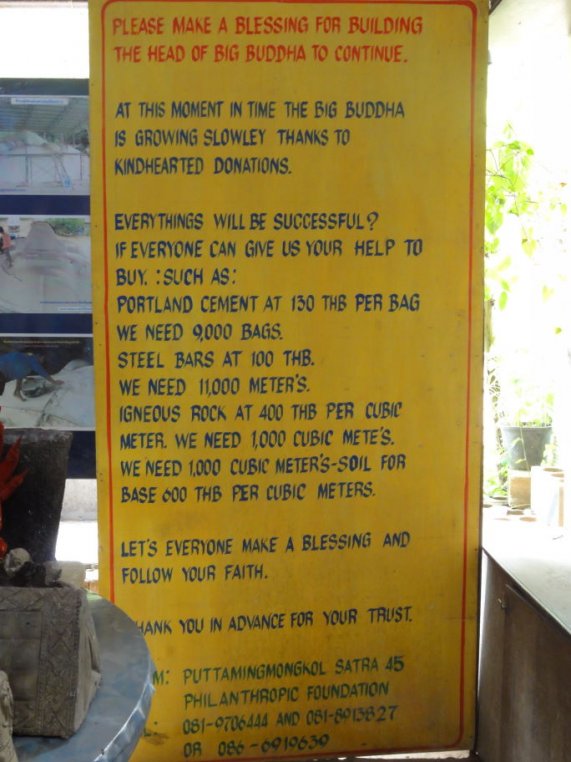 PLEASE MAKE A BLESSING FOR BUILDING
THE HEAD OF BIG BUDDHA TO CONTINUE.
AT THIS MOMENT IN TIME THE BIG BUDDHA
IS GROWING SLOWLEY THANKS TO
KINDHEARTED DONATIONS.
EVERYTHINGS WILL BE SUCCESSFUL?
IF EVERYONE CAN GIVE US YOUR HELP TO
BUY. :SUCH AS:
PORTLAND CEMENT AT 130 THB PER BAG
WE NEED 9,000 BAGS.
STEEL BARS AT 100 THB.
WE NEED 11,000 METER'S.
IGNEOUS ROCK AT 400 THB PER CUBIC
METER. WE NEED 1,000 CUBIC METE'S.
WE NEED 1,000 CUBIC METER'S-SOIL FOR
BASE 600 THB PER CUBIC METERS.
LET'S EVERYONE MAKE A BLESSING AND
FOLLOW YOUR FAITH.
HANK YOU IN ADVANCE FOR YOUR TRUST.
M: PUTTAMINGMONGKOL SATRA 45
PHILANTHROPIC FOUNDATION
081-9706444 AND 081-8913827
OR 086-6919639